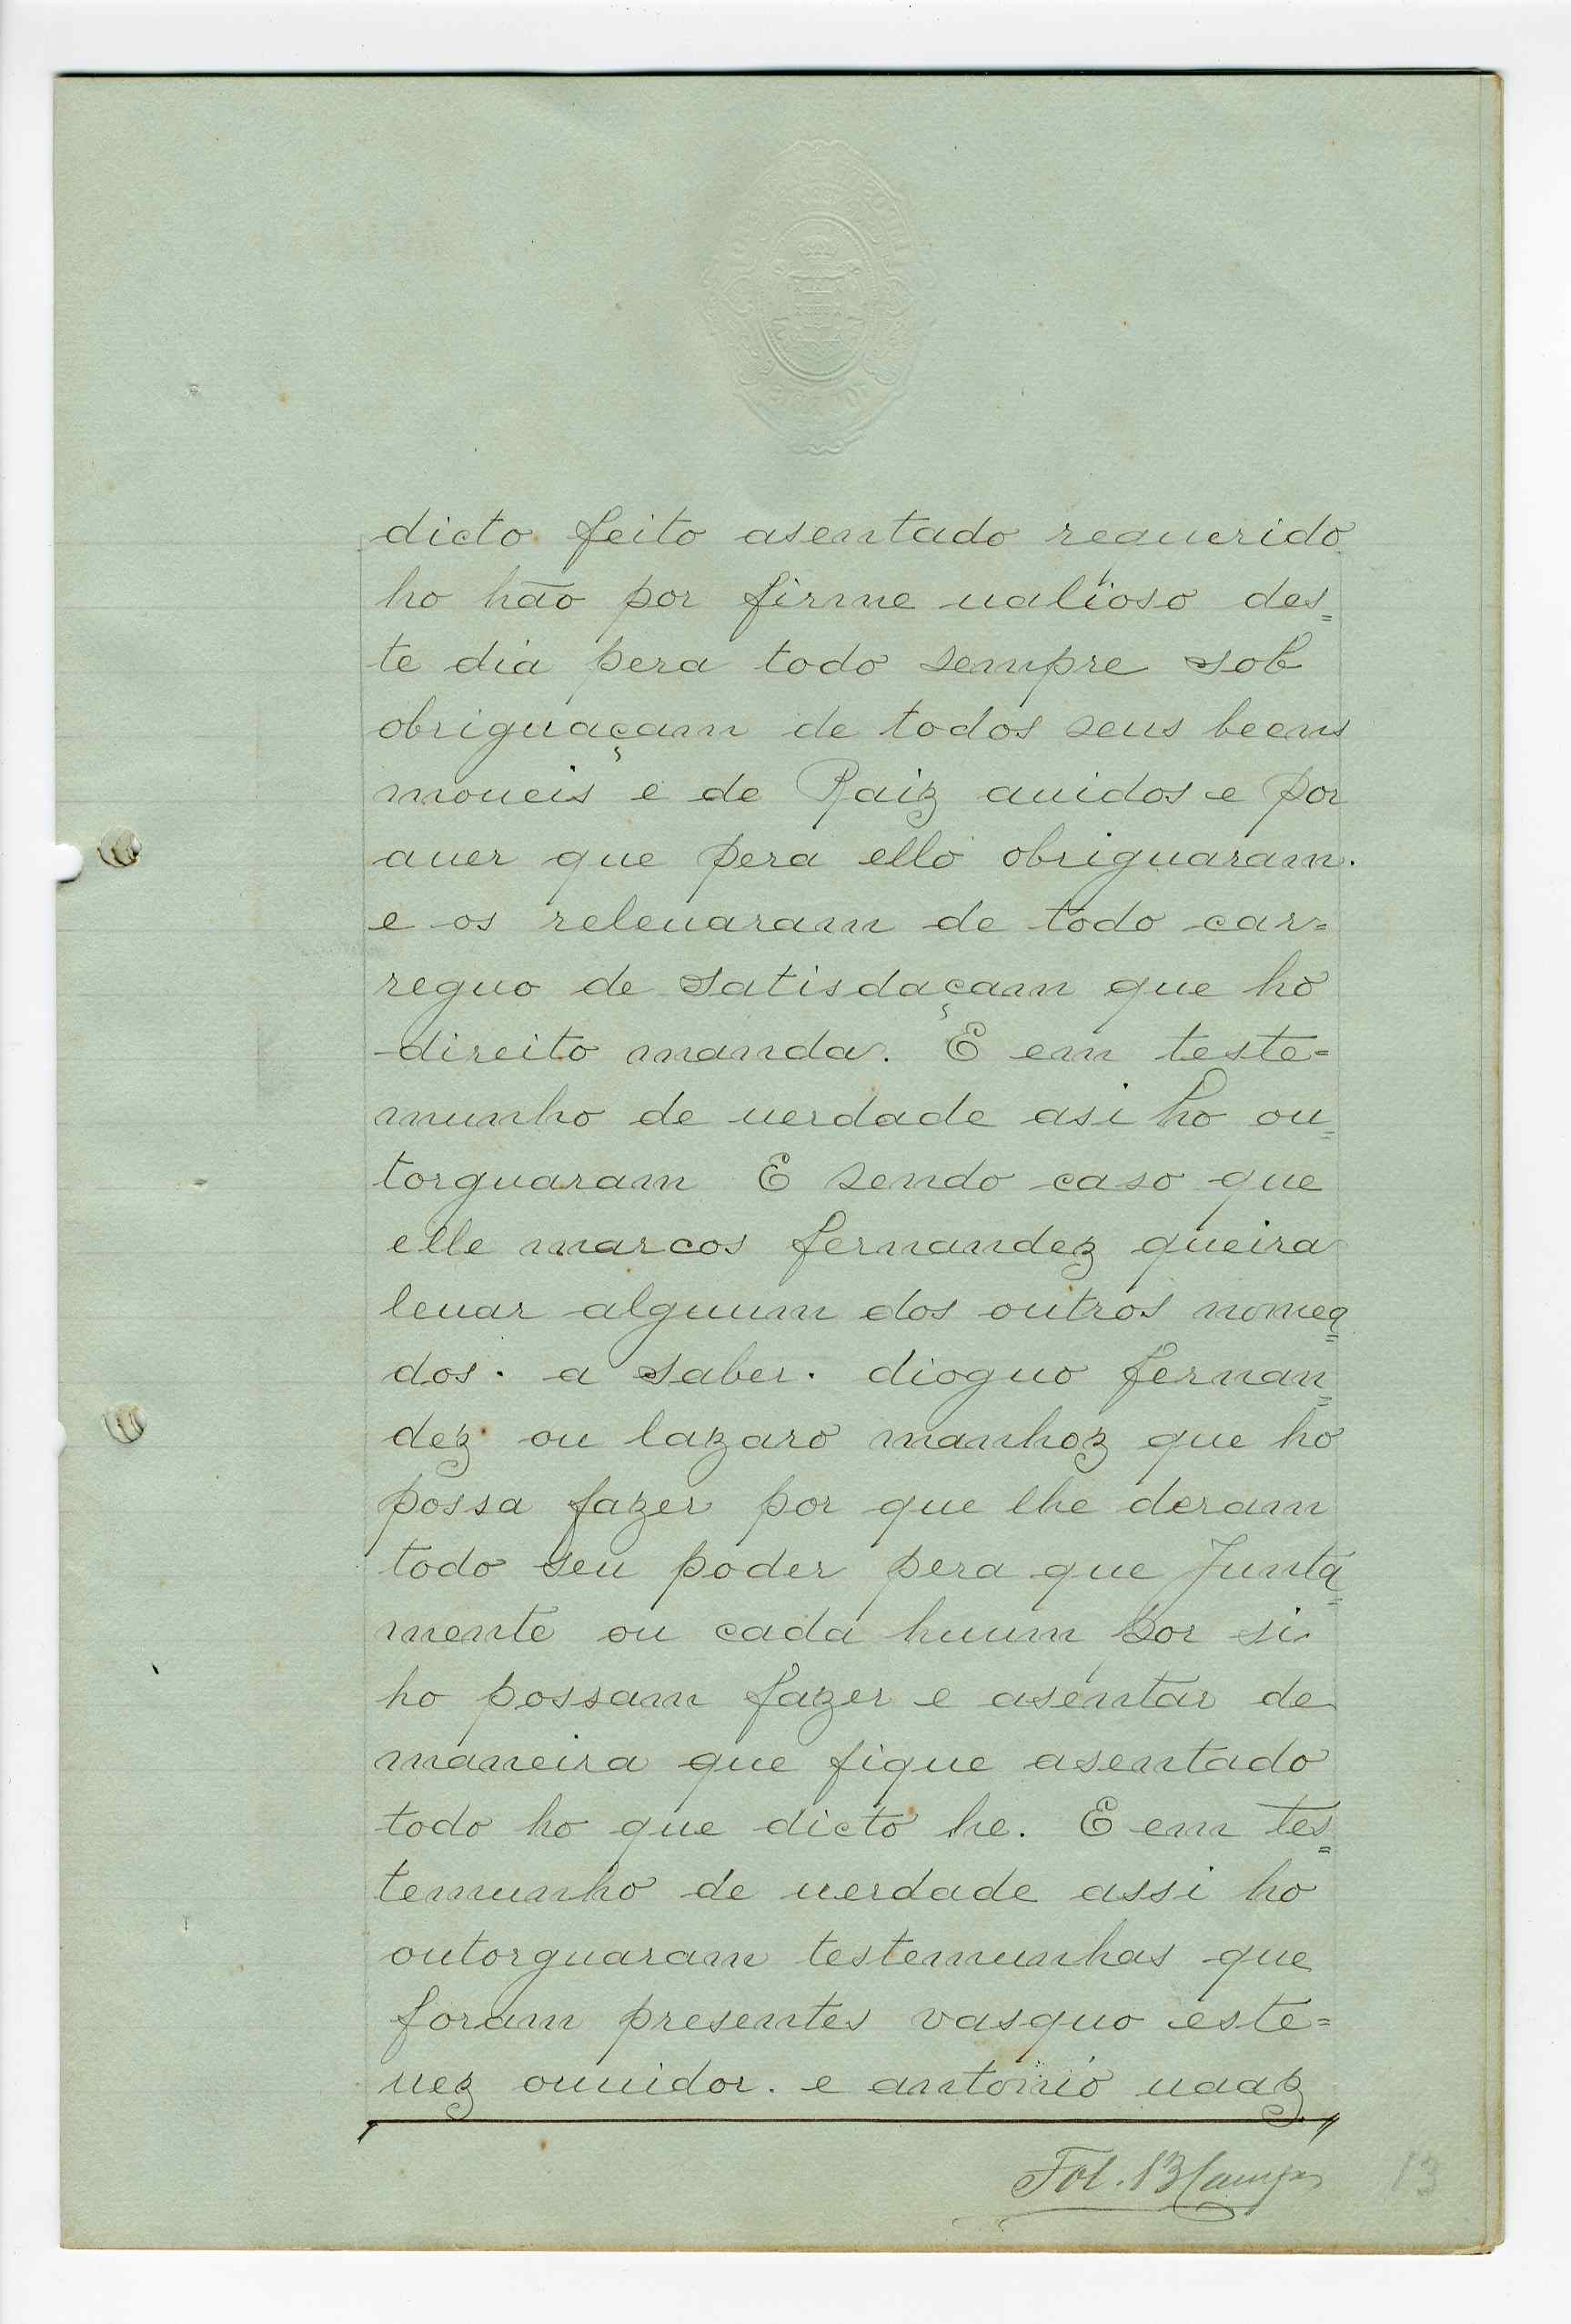 dicto feito asentado requerido
ho hão por firme ualioso des=
te dia pera todo sempre sob
obriguaçam de todos seus beens
moueis e de Raiz auidos e por
auer que pera ello obriguaram.
e os releuaram de todo car=
reguo de satisdaçam que ho
direito manda. E em teste=
munho de uerdade asi ho ou=
torguaram E sendo caso que
elle marcos fernandez queira
leuar alguum dos outros nomea=
dos. a saber. dioguo fernan=
dez ou lazaro manhoz que ho
possa fazer por que lhe deram
todo seu poder pera que Junta=
mente ou cada huum por si
ho possam fazer e asentar de
maneira que fique asentado
todo ho que dicto he. E em tes=
temunho de uerdade assi ho
outorguaram testemunhas que
foram presentes vasquo este=
uez ouuidor. e antonio uaaz
Fol. 13 Campos 13